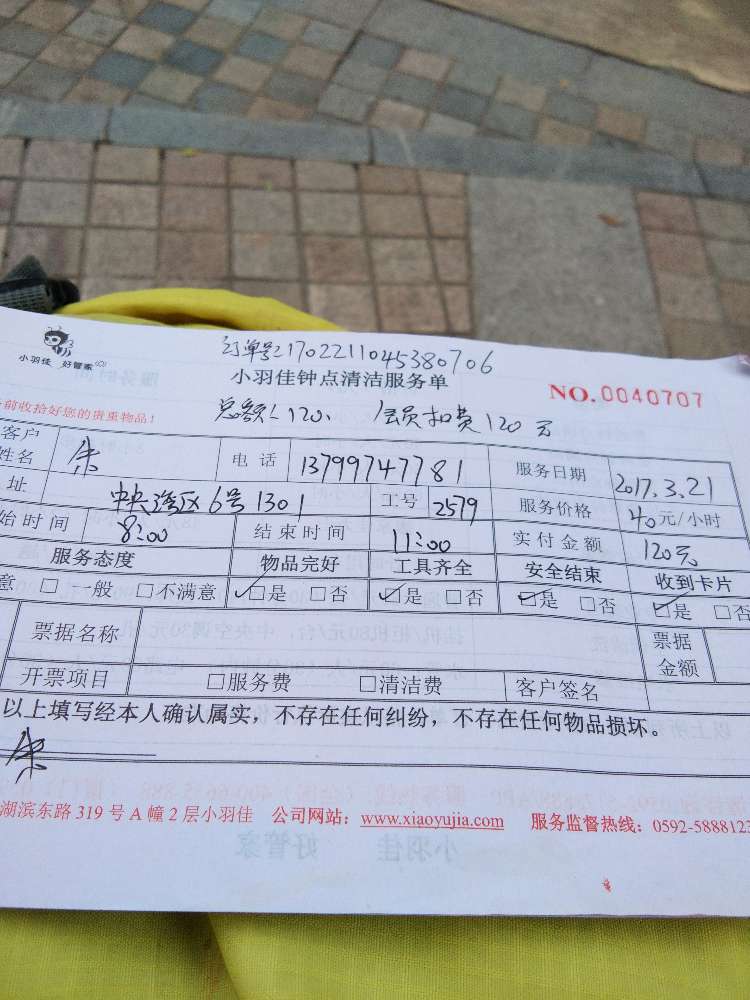 订单号:1702211045380706
小羽佳 好管家
小羽佳钟点清洁服务单
NO.0040707
前收拾好您的贵重物品!
总额:120. 会员扣费120元
客户姓名 朱 电话 13799747781 服务日期 2017.3.21
址 中央湾区6号1301 工号 2579 服务价格 40元/小时
始时间 8:00 结束时间 11:00 实付金额 120元
服务态度 物品完好 工具齐全 安全结束 收到卡片
意 □一般 □不满意 ☑是 □否 ☑是 □否 ☑是 □否 ☑是 □否
票据名称 票据金额
开票项目 □服务费 □清洁费 客户签名
以上填写经本人确认属实，不存在任何纠纷，不存在任何物品损坏。
朱
湖滨东路319号A幢2层小羽佳 公司网站：www.xiaoyujia.com 服务监督热线：0592-5888123